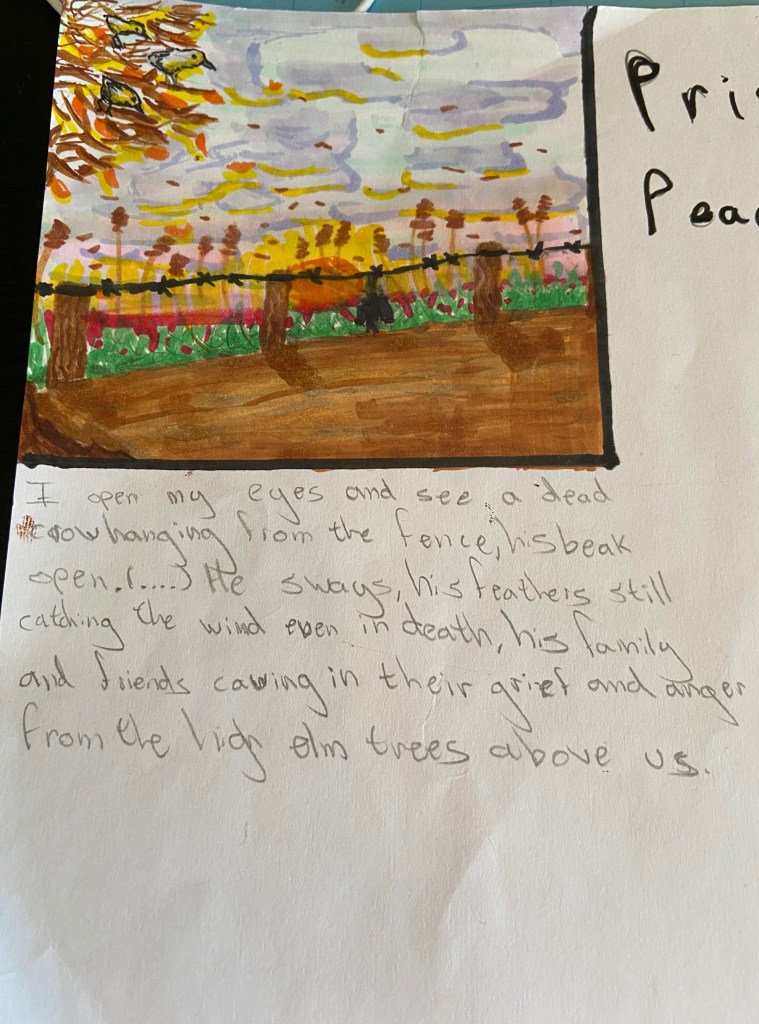 Pri
Pea
I open my eyes and see a dead
crow hanging from the fence, his beak
open.(....) He sways, his feathers still
catching the wind even in death, his family
and friends cawing in their grief and anger
from the elm trees above us.